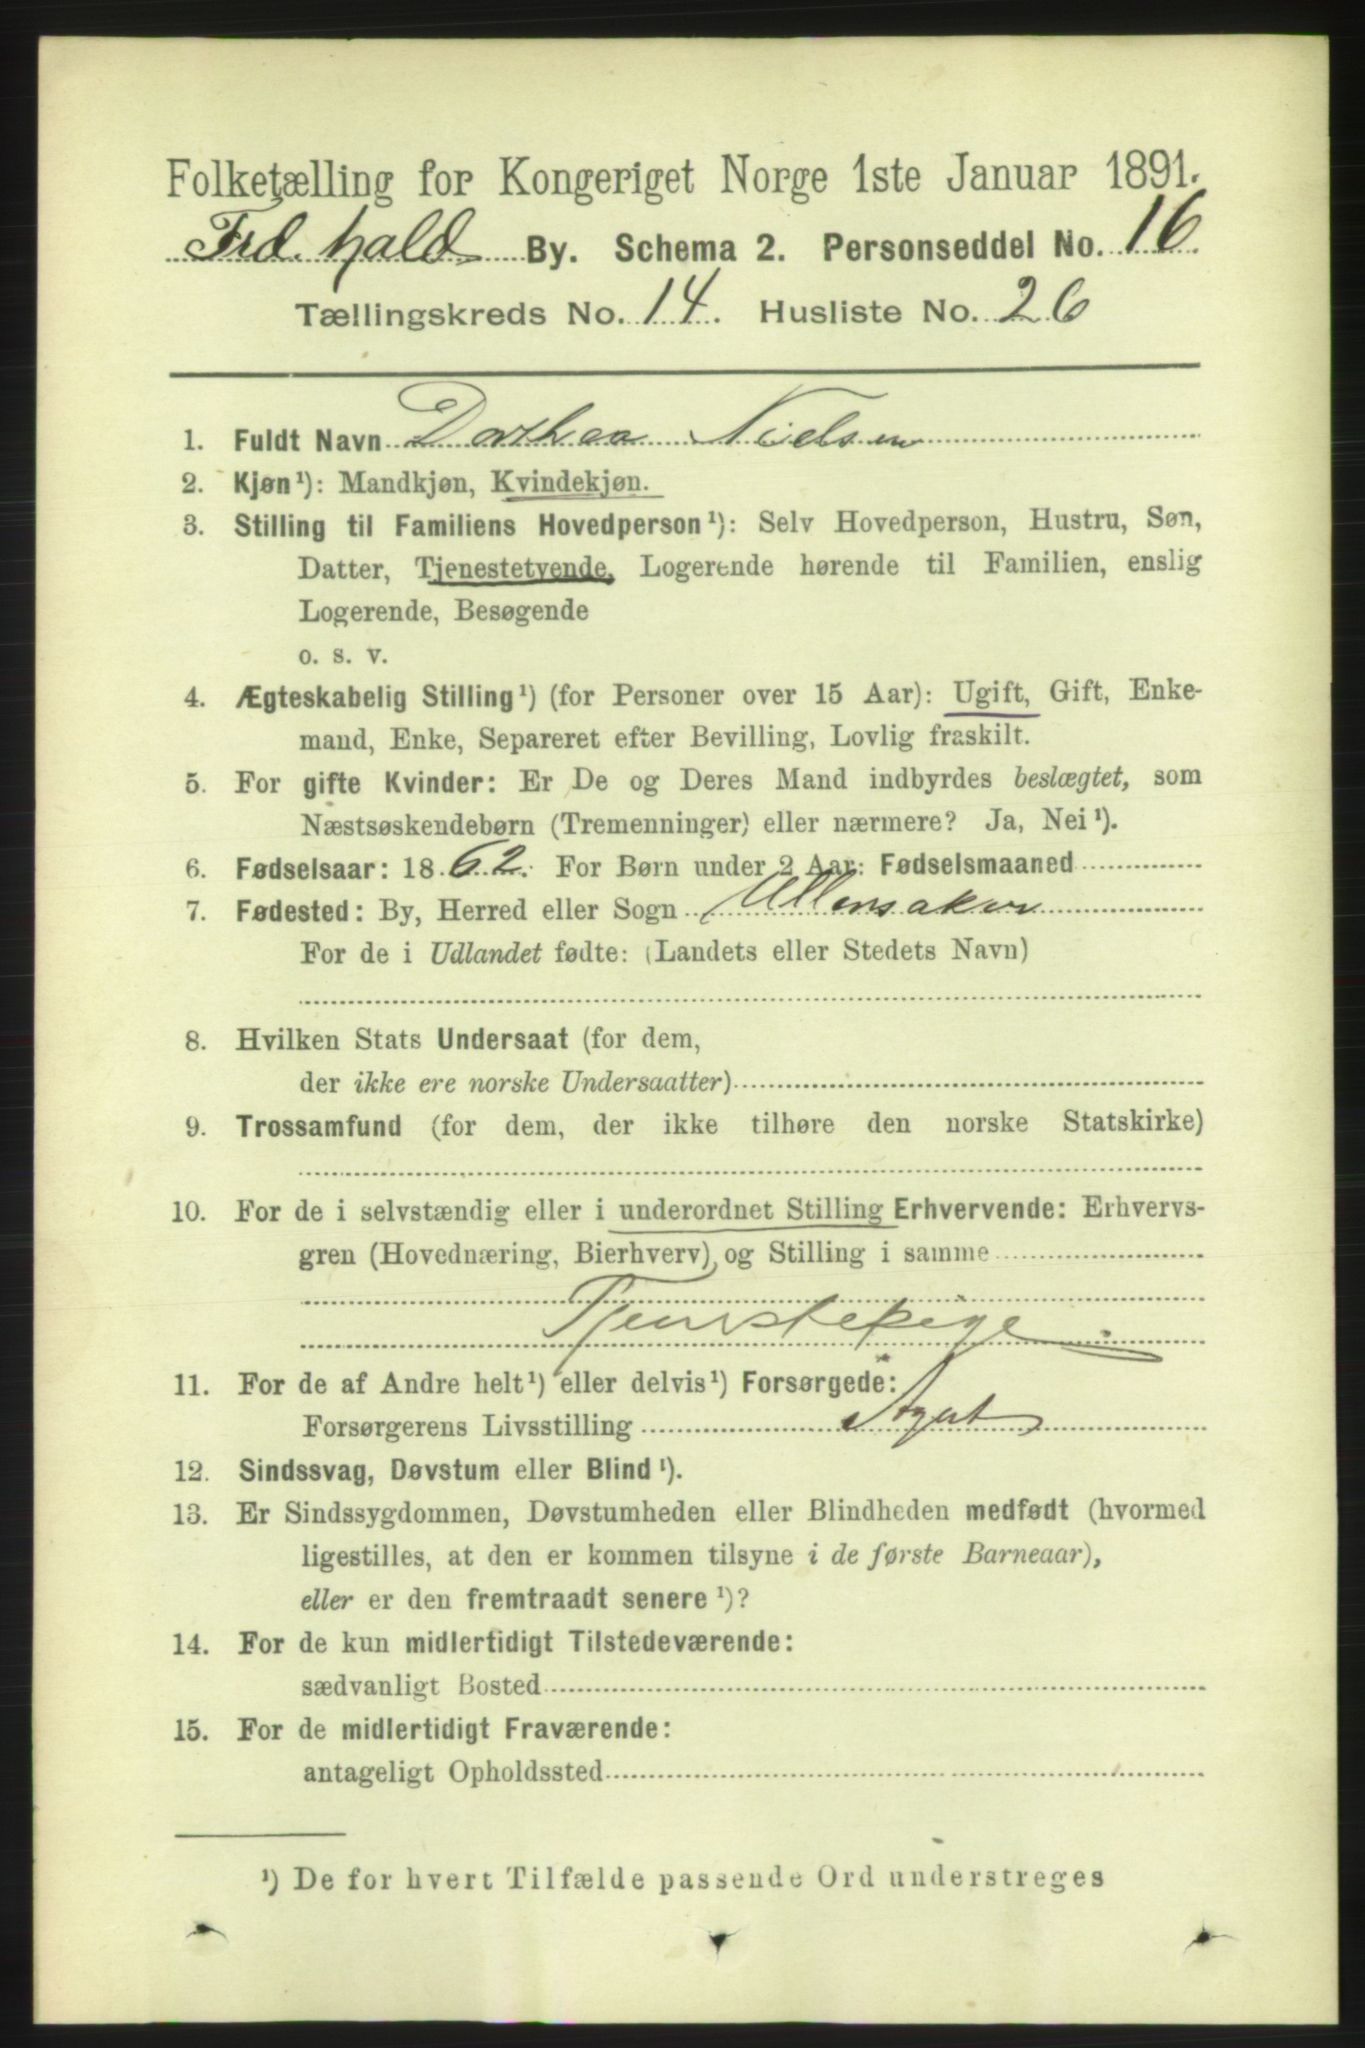 Folketælling for Kongeriget Norge 1ste Januar 1891.
Frd.hald By. Schema 2. Personseddel No. 16
Tællingskreds No. 14. Husliste No. 26
1. Fuldt Navn Dorthea Nielsen
2. Kjøn¹): Mandkjøn, Kvindekjøn.
3. Stilling til Familiens Hovedperson¹): Selv Hovedperson, Hustru, Søn,
Datter, Tjenestetyende, Logerende hørende til Familien, enslig
Logerende, Besøgende
o. s. v.
4. Ægteskabelig Stilling¹) (for Personer over 15 Aar): Ugift, Gift, Enke-
mand, Enke, Separeret efter Bevilling, Lovlig fraskilt.
5. For gifte Kvinder: Er De og Deres Mand indbyrdes beslægtet, som
Næstsøskendebørn (Tremenninger) eller nærmere? Ja, Nei¹).
6. Fødselsaar: 1862. For Børn under 2 Aar: Fødselsmaaned
7. Fødested: By, Herred eller Sogn Ullensaker
For de i Udlandet fødte: (Landets eller Stedets Navn)
8. Hvilken Stats Undersaat (for dem,
der ikke ere norske Undersaatter)
9. Trossamfund (for dem, der ikke tilhøre den norske Statskirke)
10. For de i selvstændig eller i underordnet Stilling Erhvervende: Erhvervs-
gren (Hovednæring, Bierhverv) og Stilling i samme
Tjenestepige
11. For de af Andre helt¹) eller delvis¹) Forsørgede:
Forsørgerens Livsstilling Agent
12. Sindssvag, Døvstum eller Blind¹).
13. Er Sindssygdommen, Døvstumheden eller Blindheden medfødt (hvormed
ligestilles, at den er kommen tilsyne i de første Barneaar),
eller er den fremtraadt senere¹)?
14. For de kun midlertidigt Tilstedeværende:
sædvanligt Bosted
15. For de midlertidigt Fraværende:
antageligt Opholdssted
¹) De for hvert Tilfælde passende Ord understreges